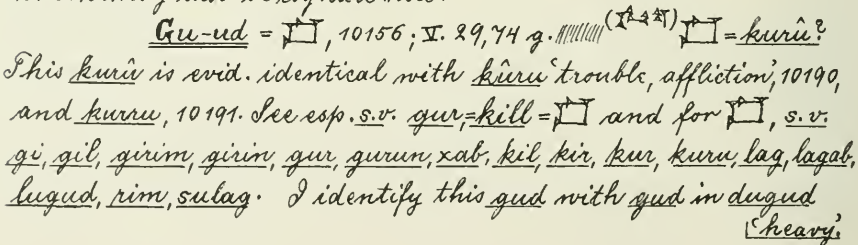 Gu-ud = 𒆸, 10156; V. 29, 74 g. = kurû?
This kurû is evid. identical with kûru 'trouble, affliction', 10190,
and kurru, 10191. See esp. s.v. gur, = kill = 𒆸 and for 𒆸, s.v.
gi, gil, girim, girin, gur, gurun, xab, kil, kir, kur, kuru, lag, lagab,
lugud, rim, sulag. I identify this gud with gud in dugud
'heavy'.